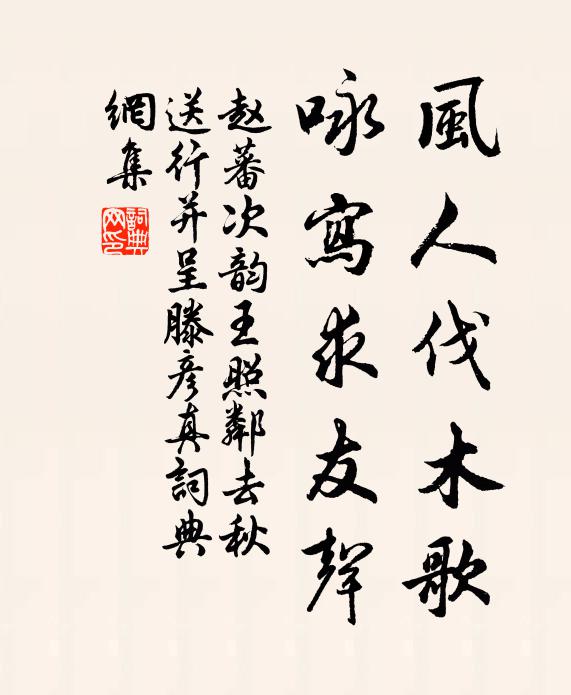 風人伐木歌
咏寫求友聲
赵蕃次韵王照鄰去秋
送行并呈滕彦真詞典
網集
詞典
网印